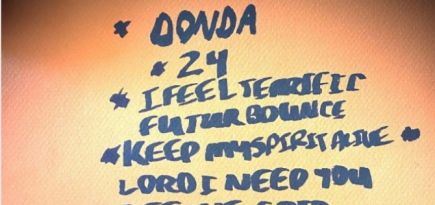 * DONDA
* 24
* I FEEL TERRIFIC
FUTUR BOUNCE
* KEEP MY SPIRIT ALIVE *
LORD I NEED YOU